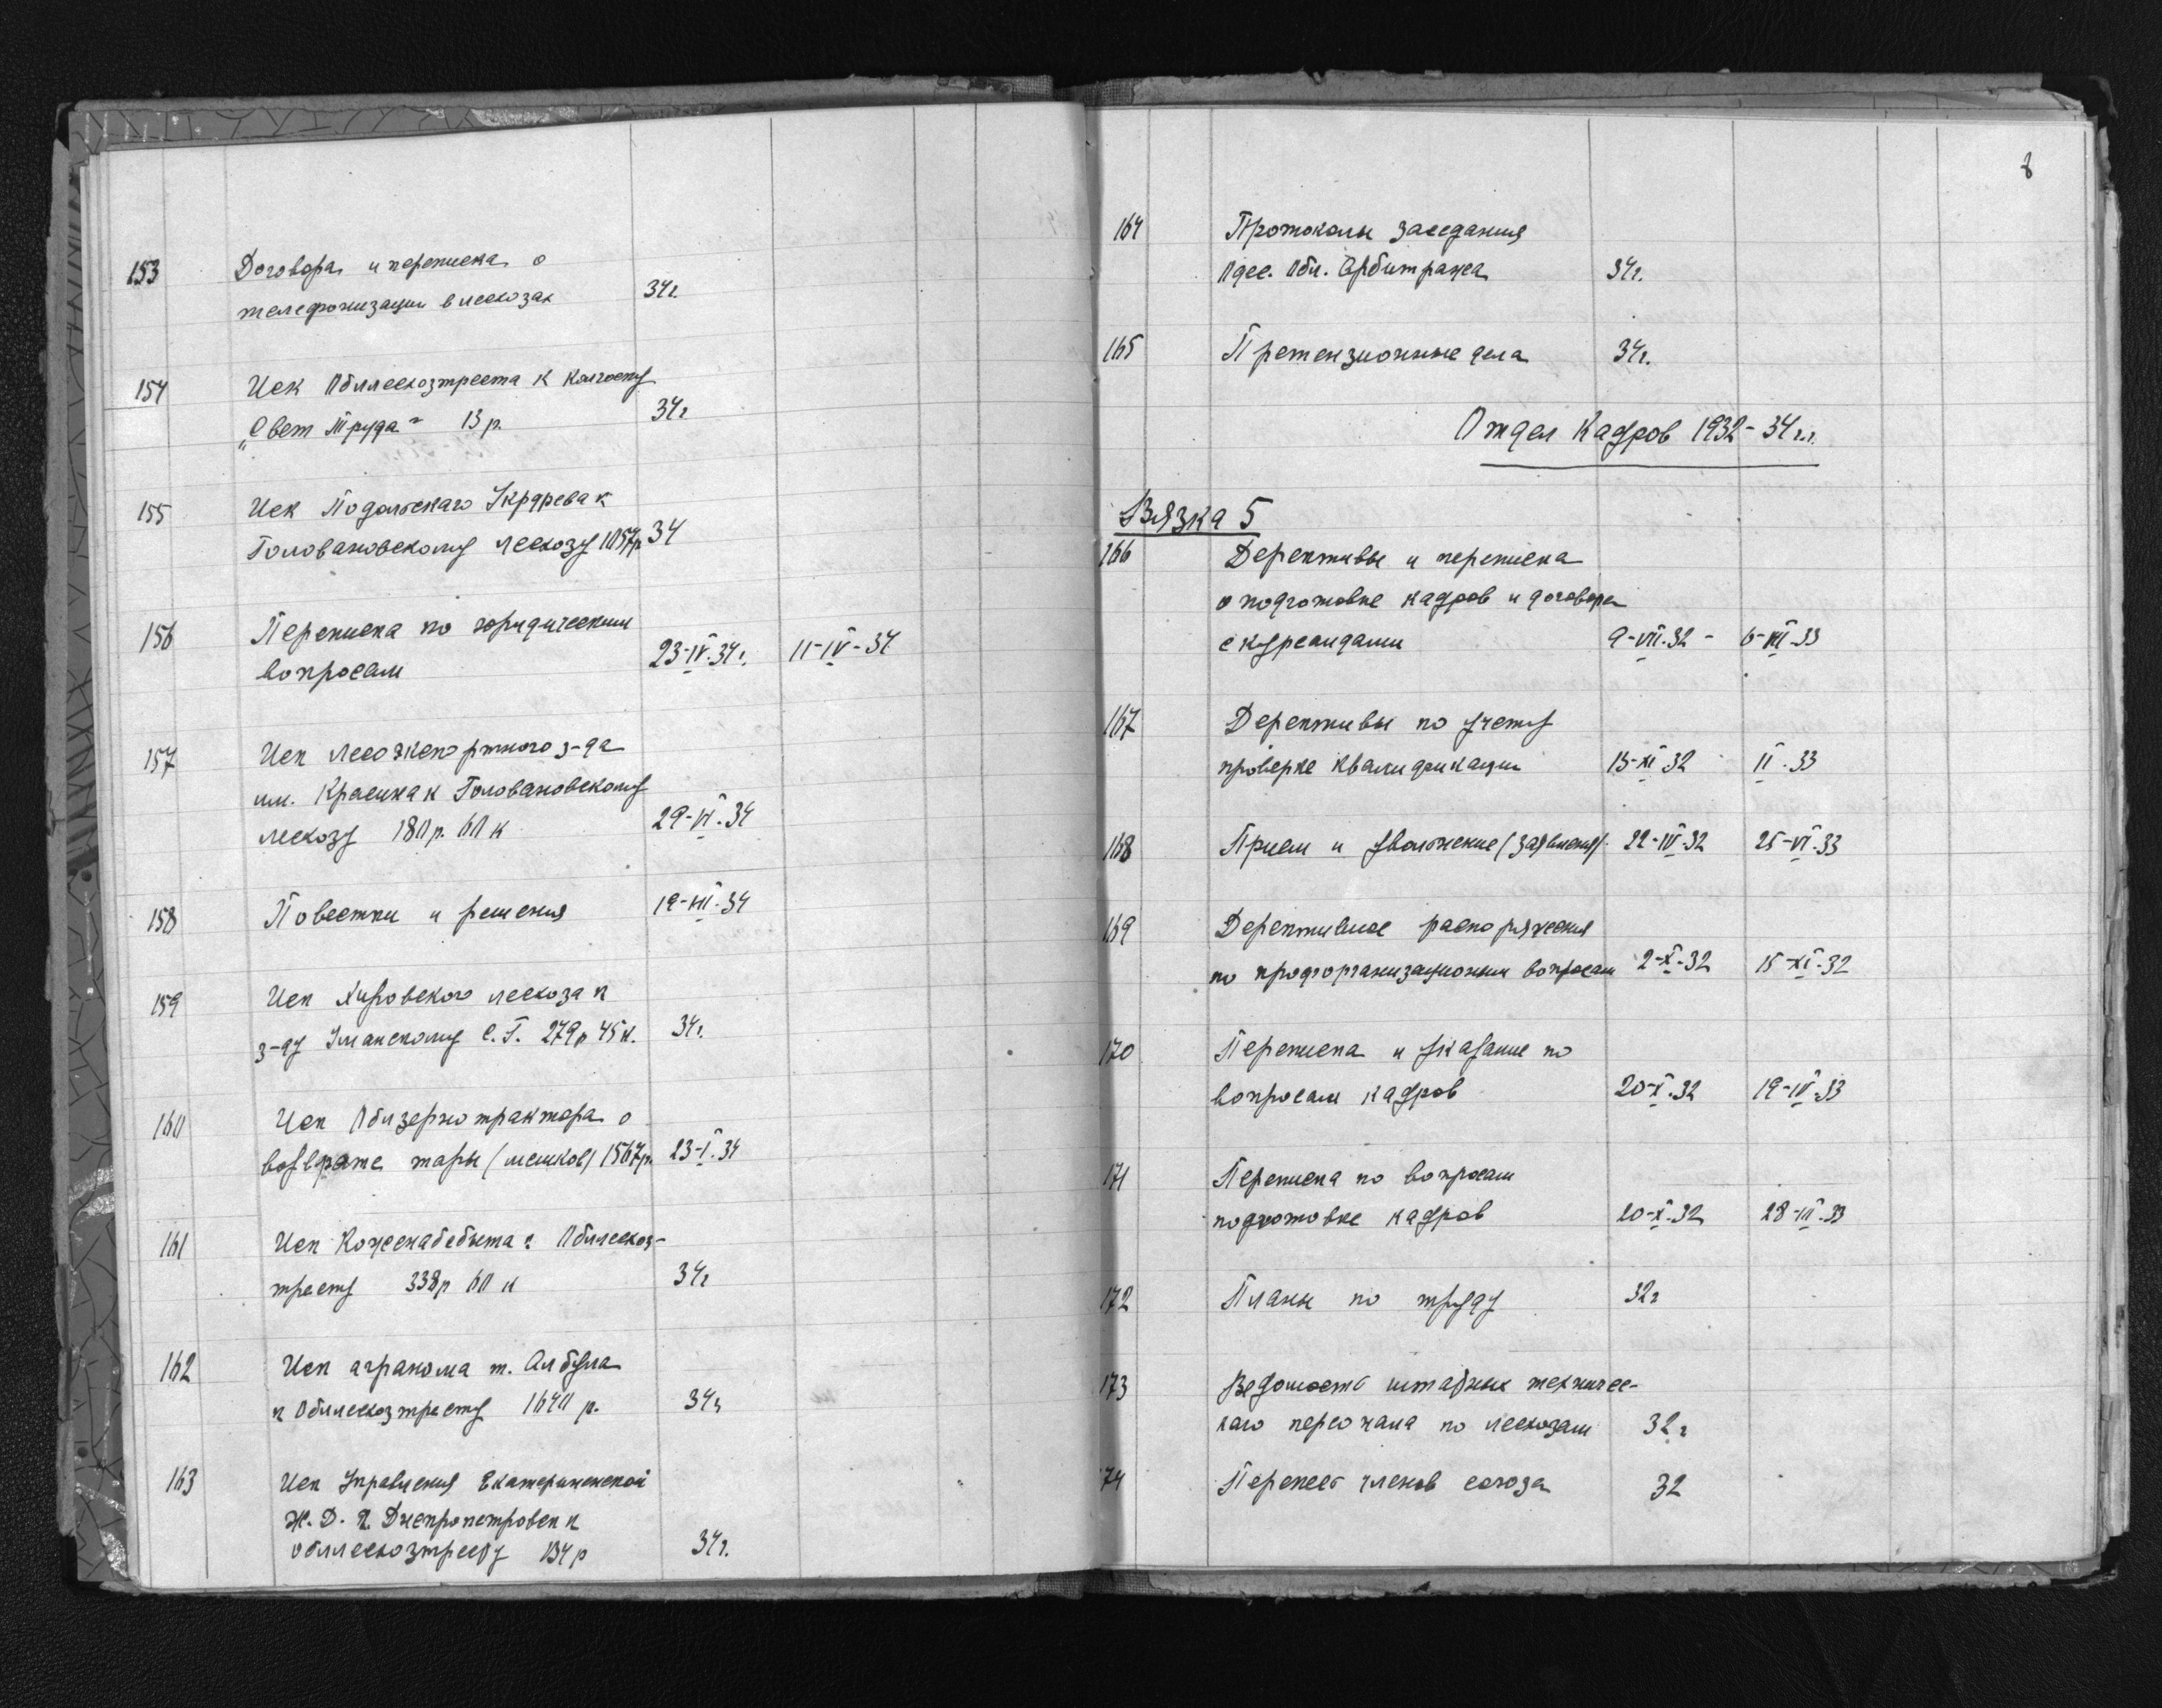 153 Договора и переписка о
телефонизации в лесхозах 34г.
154 Иск Обллесхозтреста к колхозу
„Свет Труда" 13 р. 34г
155 Иск Подольскаго Укрдрева к
Головановскому лесхозу 1057р 34
156 Переписка по юридическим
вопросам 23-IV-34г. 11-IV-34
157 Иск лесоэкспортного з-да
им. Красина к Головановскому
лесхозу 180 р. 60 к 29-VI-34
158 Повестки и решения 19-VIII-34
159 Иск Кировского лесхоза к
з-ду Уманскому С.Г. 279р 45 к. 34г.
160 Иск Облзернотрактора о
возврате тары (мешков) 1567р. 23-I-34
161 Иск Кожснабсбыта к Обллесхоз-
тресту 338р 60 к 34г
162 Иск агранома т. Албула
к Обллесхозтресту 1640 р. 34г
163 Иск Управления Екатериненской
Ж.Д. г. Днепропетровск к
обллесхозтресту 134р 34г.
8
164 Протоколы заседания
Одес. Обл. Арбитража 34г.
165 Претензионные дела 34г.
Отдел Кадров 1932-34 г.г.
Вязка 5
166 Дерективы и переписка
о подготовке кадров и договора
с курсандами 9-VII-32 - 6-VII-33
167 Дерективы по учету
проверке квалификации 15-XI 32 II-33
168 Прием и увольнение (заявления) 22-IV-32 25-VI-33
169 Дерективное распоряжения
по продорганизационым вопросам 2-X-32 15-XI-32
170 Переписка и указание по
вопросам кадров 20-X-32 19-IV-33
171 Переписка по вопросам
подготовке кадров 20-X-32 28-III-33
172 Планы по труду 32г
173 Ведомость штабных техничес-
каго персонала по лесхозам 32г
174 Перепесь членов союза 32